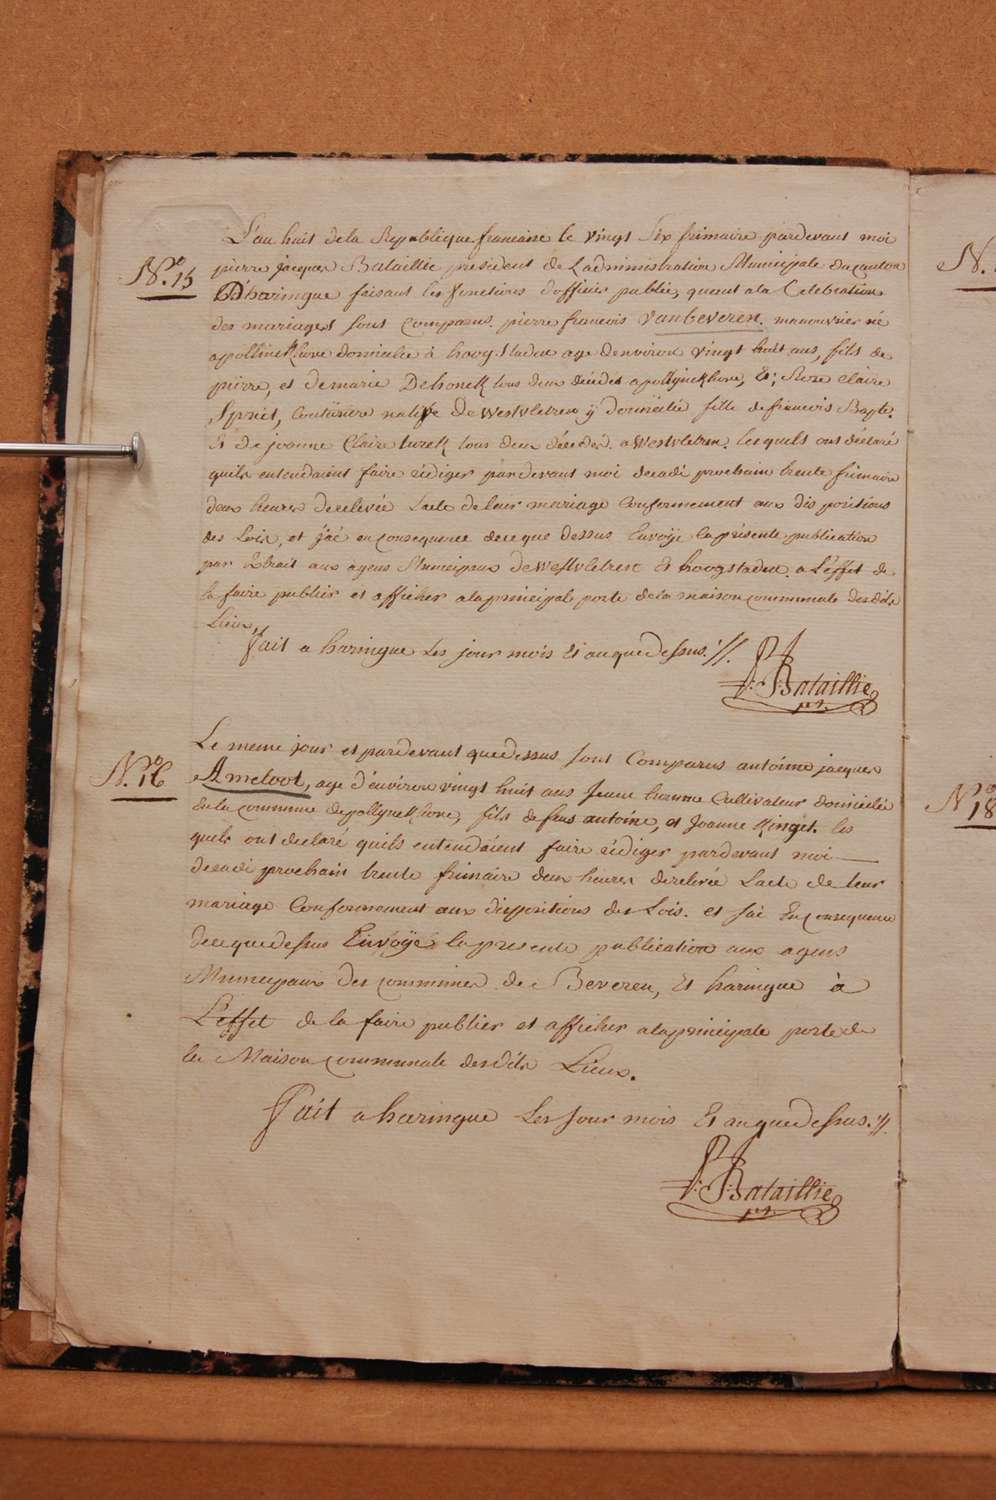 L'an huit de la Republique francaise le vingt six frimaire pardevant moi
N.º 15
pierre jacques Bataillie president de L'administration Municipale du canton
D'haringue faisant les fonctions d'officier public, quant a la Celebration
des mariages sont comparus pierre francois vanbeveren. manouvrier né
apollinckhove domicilie à hoogstaden age denviron vingt huit ans, fils de
pierre, et de marie Dehonck tous deux décédes a pollynckhove, Et, Rose Claire
Spriet, Couturiere native de Westvletren ÿ domicilié fille de francois Bapte.
Et de joanne Claire turck tous deux décedés. a Westvletren. lesquels ont déclaré
quils entendaient faire rédiger pardevant moi decadi prochain trente frimaire
deux heures de relevée Lacte de leur mariage Conformement aux dispositions
des Lois, et j'ai en consequence de ce que dessus Envoÿé la présente publication
par Extrait aux agens Municipaux de Westvletren Et hoogstaden. a L'effet de
la faire publier et afficher a la principal porte de la maison communale des dits
Lieux,
fait a haringue Les jour mois Et an que dessus.//.
P: J: Bataillie
N.º 16
Le meme jour et pardevant que dessus sont Comparus antoine jacques
Ameloot, age d'énviron vingt huit ans Jeune homme Cultivateur domicilié
en la commune de pollynckhove, fils de feus antoine, et Joanne Kinget. les
quels ont declaré quils entendaient faire rédiger pardevant moi
decadi prochain trente frimaire deux heures de relevée Lacte de leur
mariage Conformement aux dispositions des Lois. et j'ai En consequence
de ce que dessus Envoÿé la presente publication aux agens
Municipaux des communes de Beveren, Et haringue à
L'effet de la faire publier et afficher a la principale porte de
la Maison communale des dits Lieux.
Fait a haringue Les Jour mois Et an que dessus.//.
P: J: Bataillie
N.
N.º 18